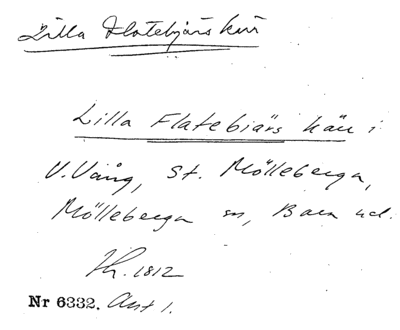 Lilla Flatebjärs kärr
Lilla Flatebiärs kärr i
V. Vång, St. Mölleberga,
Mölleberga sn, Bara hd.
Th. 1812
Nr 6332. Akt 1.